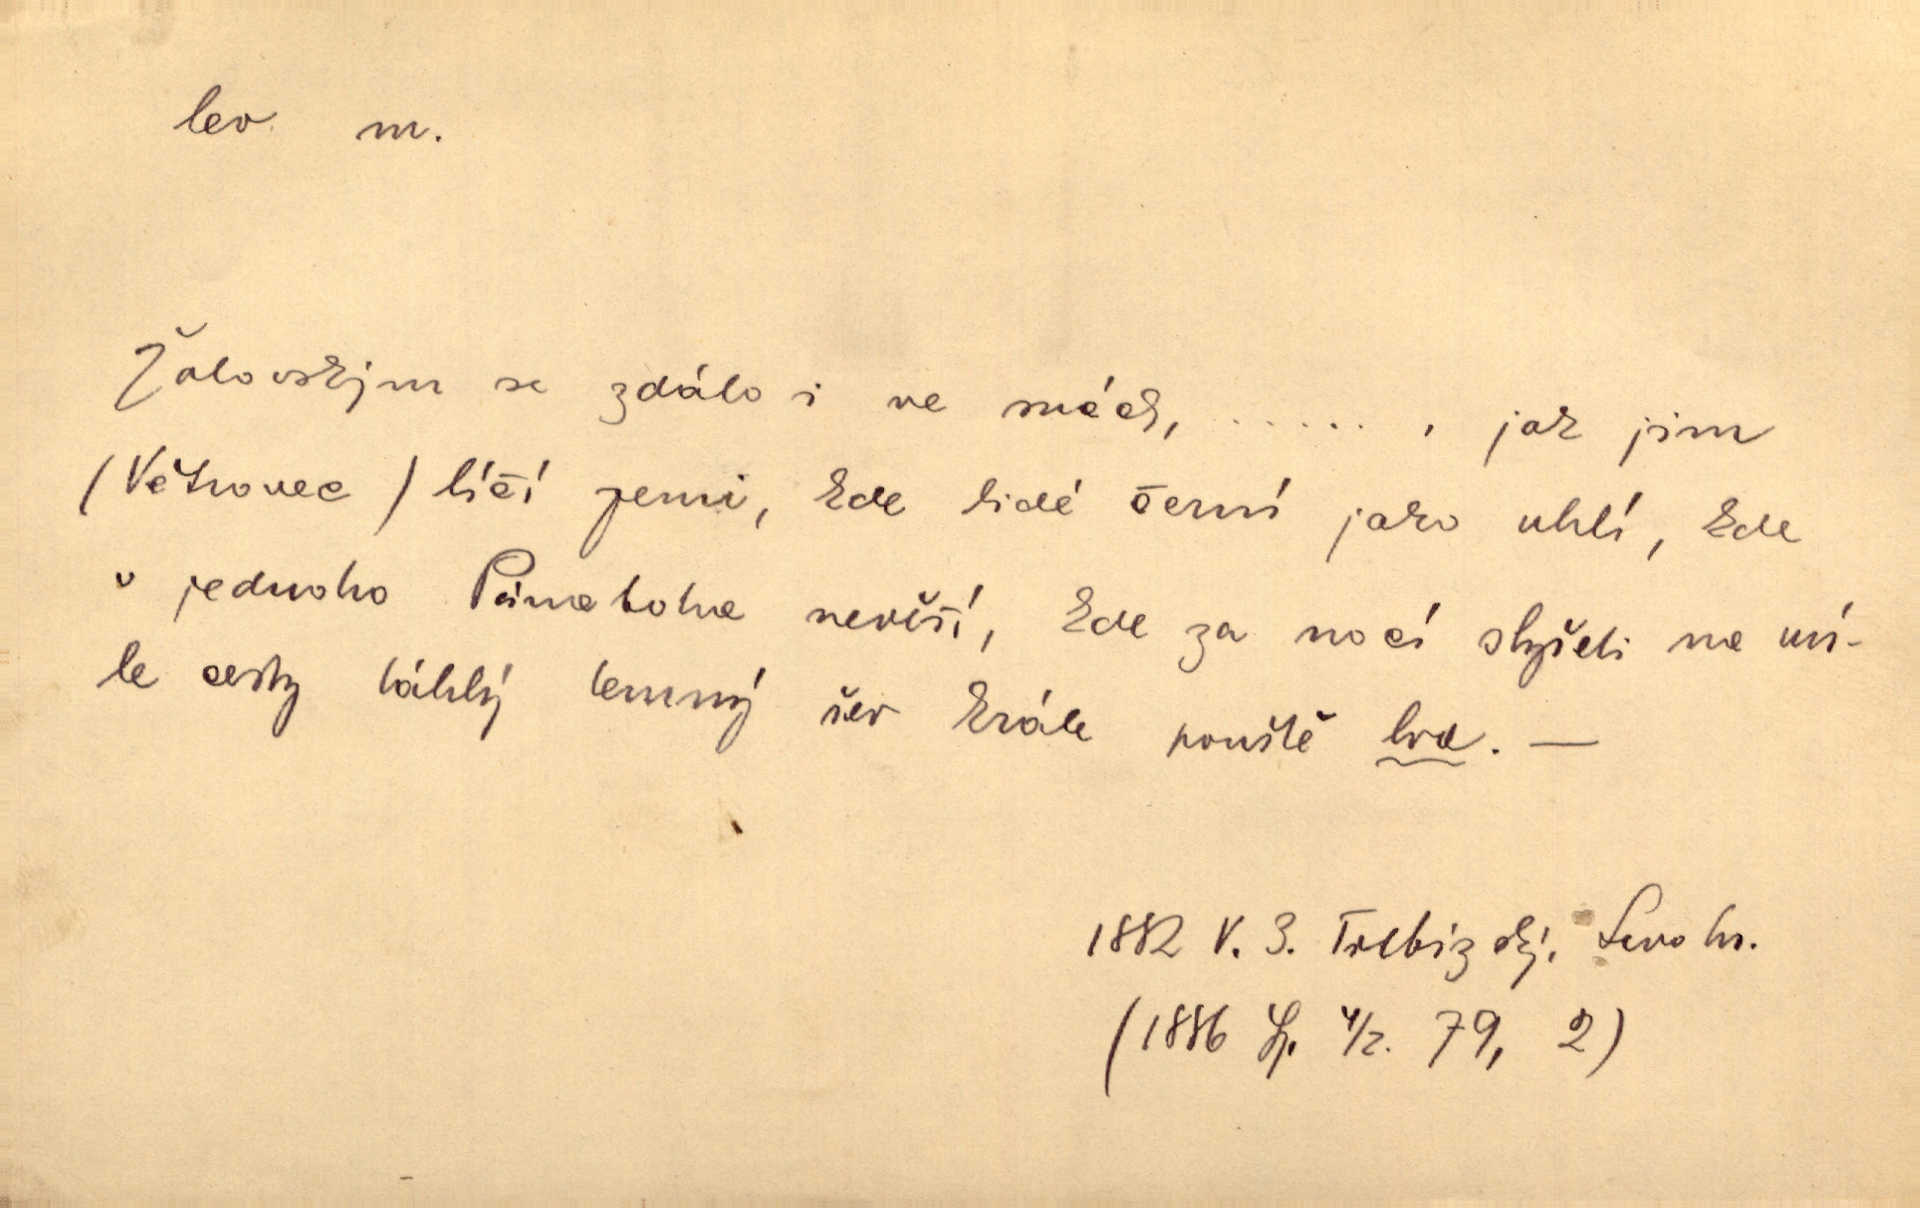 lev m.
Žalovským se zdálo i ve snách, ...... , jak jim
(Větrovec) líčí zemi, kde lidé černí jako uhlí, kde
v jednoho Pánaboha nevěří, kde za noci slyšeti na mí-
le cesty táhlý temný řev krále pouště lva. —
1882 V. B. Třebízský, Levohr.
(1886 Sp. 4/2. 79, 2)